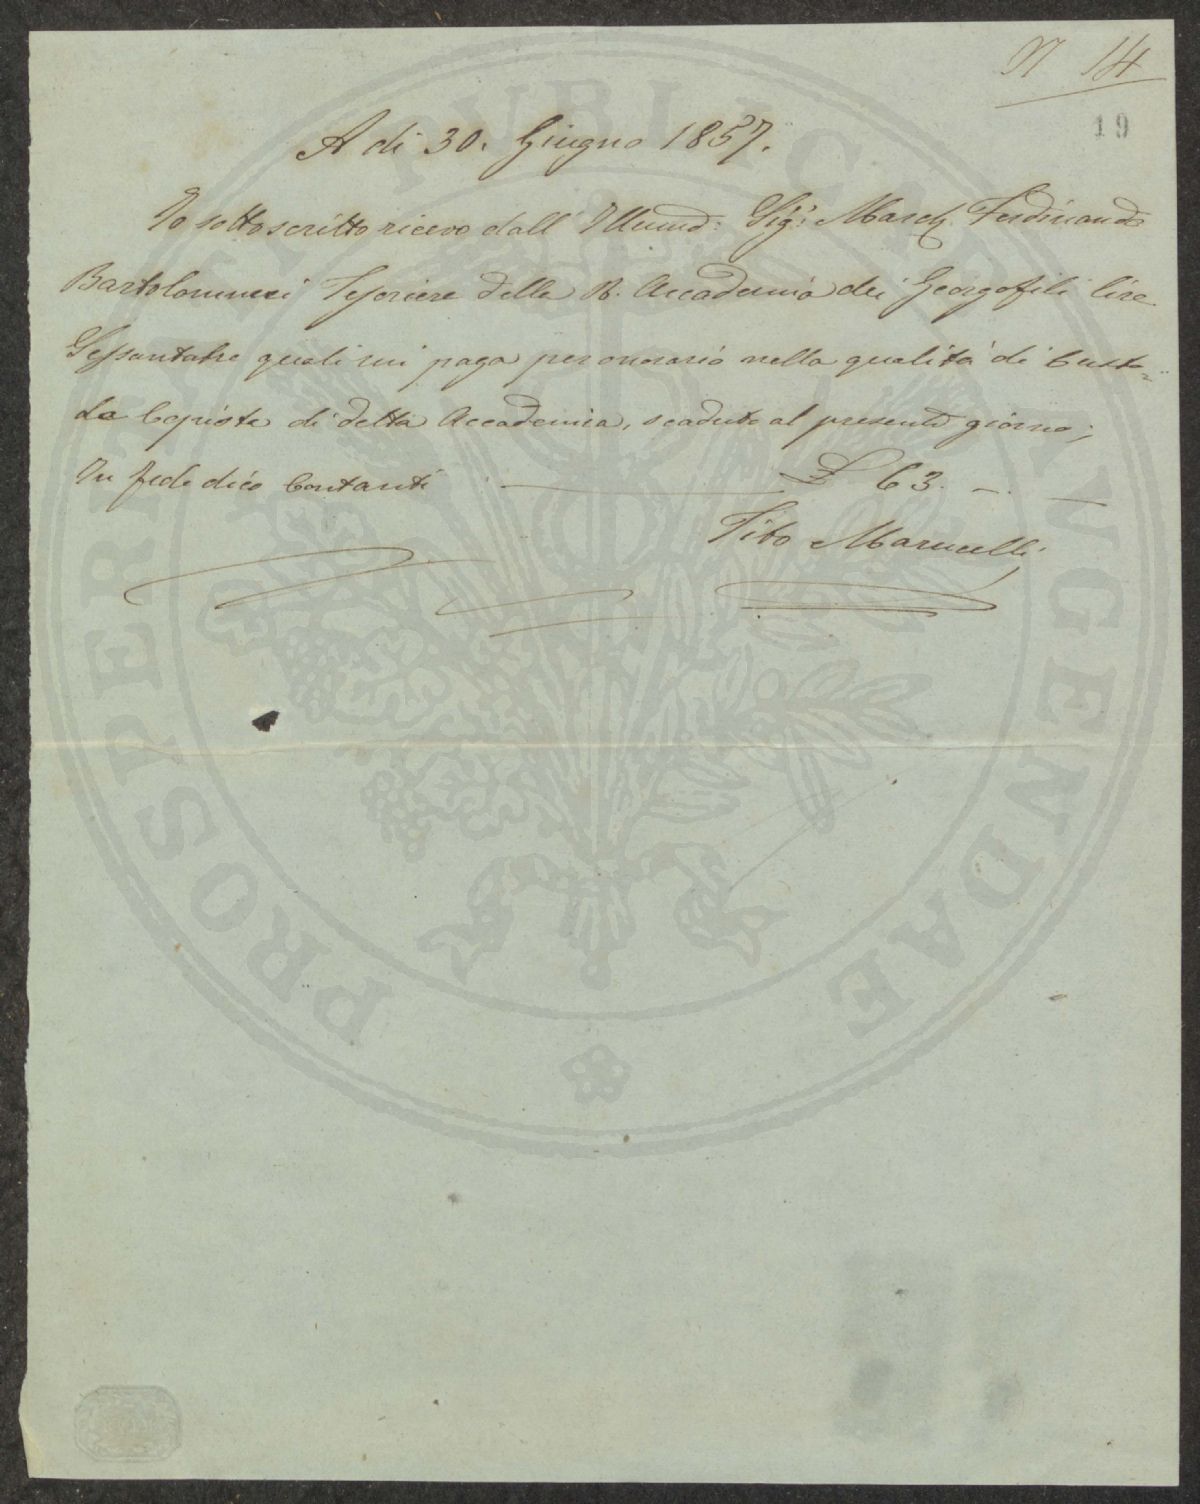 N 14
19
A di 30. Giugno 1857.
Io sottoscritto ricevo dall' Illumo: Sigr: March. Ferdinando
Bartolommei Tesoriere della R. Accademia dei Georgofili lire
Sessantatre quali mi paga per onorario nella qualità di Custo=
de Copista di detta Accademia, scaduto al presente giorno;
In fede dico Contanti £ 63. -. -
Tito Marucelli
PROSPERITATI PUBLICAE AUGENDAE